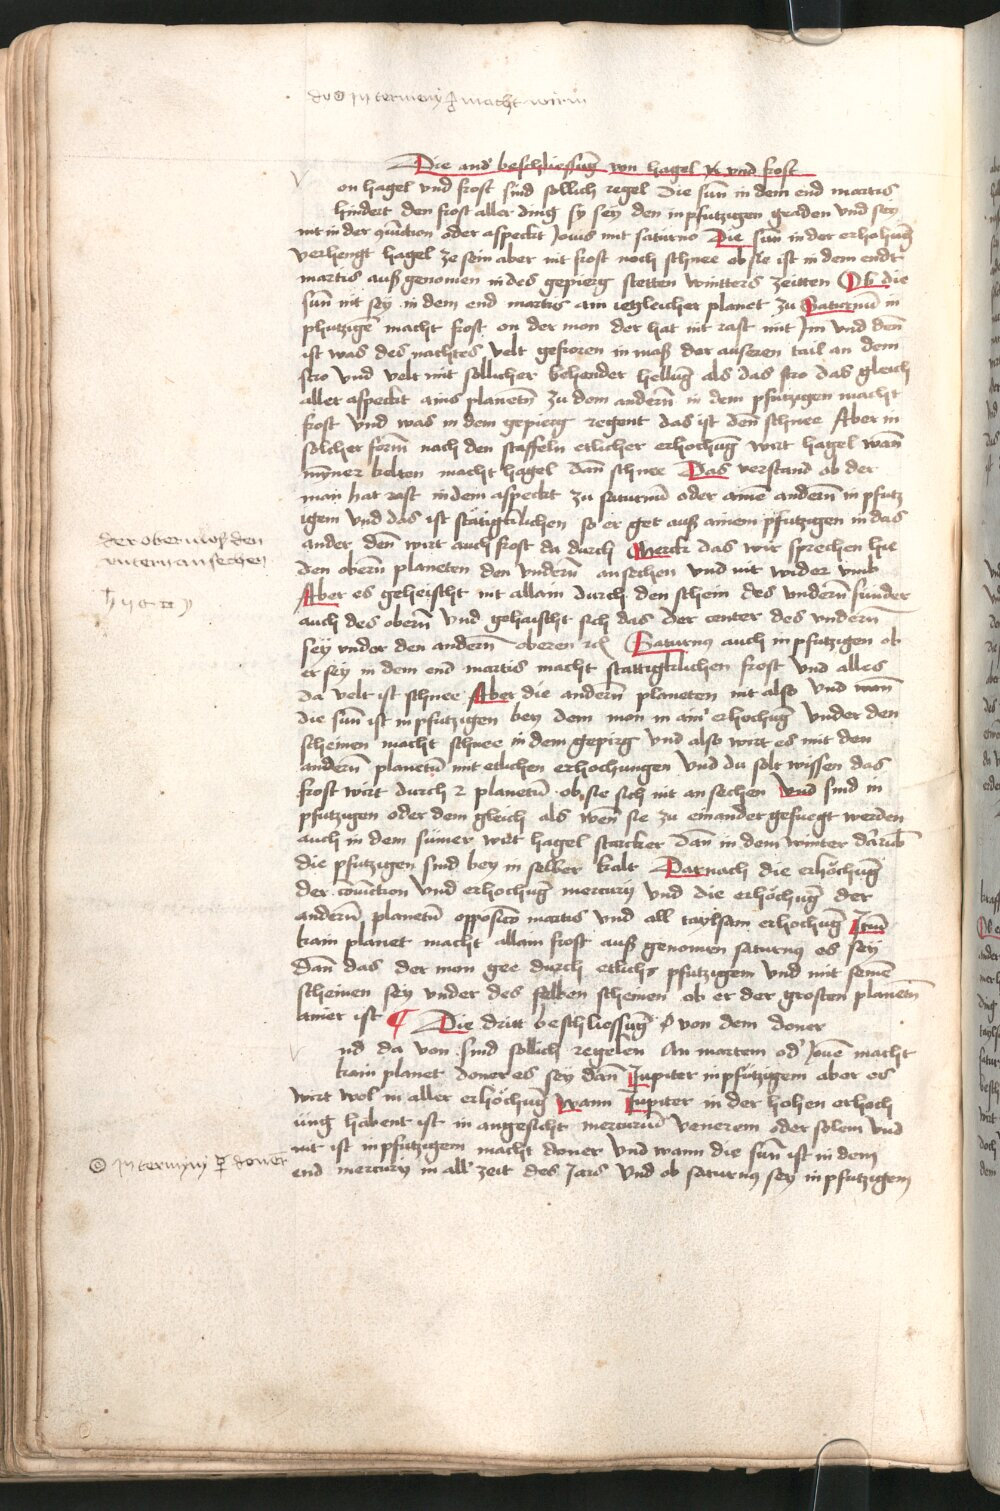 Die and' beschliessūg von hagel vnd frost
on hagel vnd frost sind sollich regel Die sūn in dem end martis
hindert den frost aller ding sy sey den in pfutzigen graden vnd sey
nit in der qūction oder aspeckt Jouis mit saturno Die sūn in der erhohūg
verhengt hagel ze sein aber nit frost noch schnee ob sie ist in dem endt
martis auß genomen in des gepierg stetten wintters zeitten Ob die
sūn nit sey in dem end martis ain iegleicher planet zu Saturnū in
phutzigē macht frost on der mon der hat nit rast mit Im vnd den
ist was des nachtes velt gefroren in maß der auseren tail an dem
stro vnd velt mit sollicher behender hellūg als das stro das gleich
aller aspeckt ains planetn̄ zu dem andern̄ in dem pfutzigen macht
frost vnd was in dem gepierg regent das ist den schnee Aber in
solcher form̄ nach den staffeln etlicher erhochūg wirt hagel wan̄
mȳner kelten macht hagel dan̄ schnee Das verstand ob der
man hat rast in dem aspeckt zu saturnū oder ainē andern̄ in pfutz
igem vnd das ist statigklichen so er get auß ainem pfutzigen in das
ander den̄ wirt auch frost da durch Merck das wir sprechen hie
den obern̄ planeten den vndern̄ ansechen vnd nit wider vmb
Aber es geheischt nit allain durch den schein des vndern̄ sunder
auch des obern̄ vnd gehaischt sich das der center des vndern̄
sey vnder den andern̄ oberen Saturnus auch in pfutzigen ob
er sey in dem end martis macht stattigklichen frost vnd alles
da velt ist schnee Aber die andern̄ planeten nit also vnd wan̄
die sūn ist in pfutzigen bey dem mon in ain' erhochūg vnder den
scheinen macht schnee in dem gepirg vnd also wirt es mit den
andern̄ planetn̄ mit etlichen erhochungen vnd du solt wissen das
frost wirt durch 2 planetn̄ ob sie sich nit ansechen vnd sind in
pfutzigen oder dem gleich als wen̄ sie zu einander gefuegt werden
auch in dem sūmer wirt hagel starcker dan̄ in dem winter darūb
die pfutzigen sind bey in selber kalt Darnach die erhöchūg
der cōiuction vnd erhochūg mercurij vnd die erhöchūg der
andern̄ planetn̄ opposicō martis vnd all taylsam erhochūg Itm̄
kain planet macht allain frost auß genomen saturnus es sey
dan̄ das der mon gee durch etlichs pfutzigem vnd mit seinē
scheinen sey vnder des selben scheinen ob er der grosten planetn̄
ainer ist ¶ Die dritt beschliessūg von dem doner
nd da von sind sollich regelen An martem od' Jouē macht
kain planet doner es sey dan̄ Jupiter in pfützigem aber es
wirt wol in aller erhöchūg wann Jupiter in der hohen erhoch
ung habent ist in angesicht mercuriū venerem oder solem vnd
nit ist in pfutzigem macht doner vnd wann die sūn ist in dem
end mercurij in all' zeit des Jars vnd ob saturnus sey in pfutzigem
der ober muß den
vntern ansechen
☉ in terminj doner